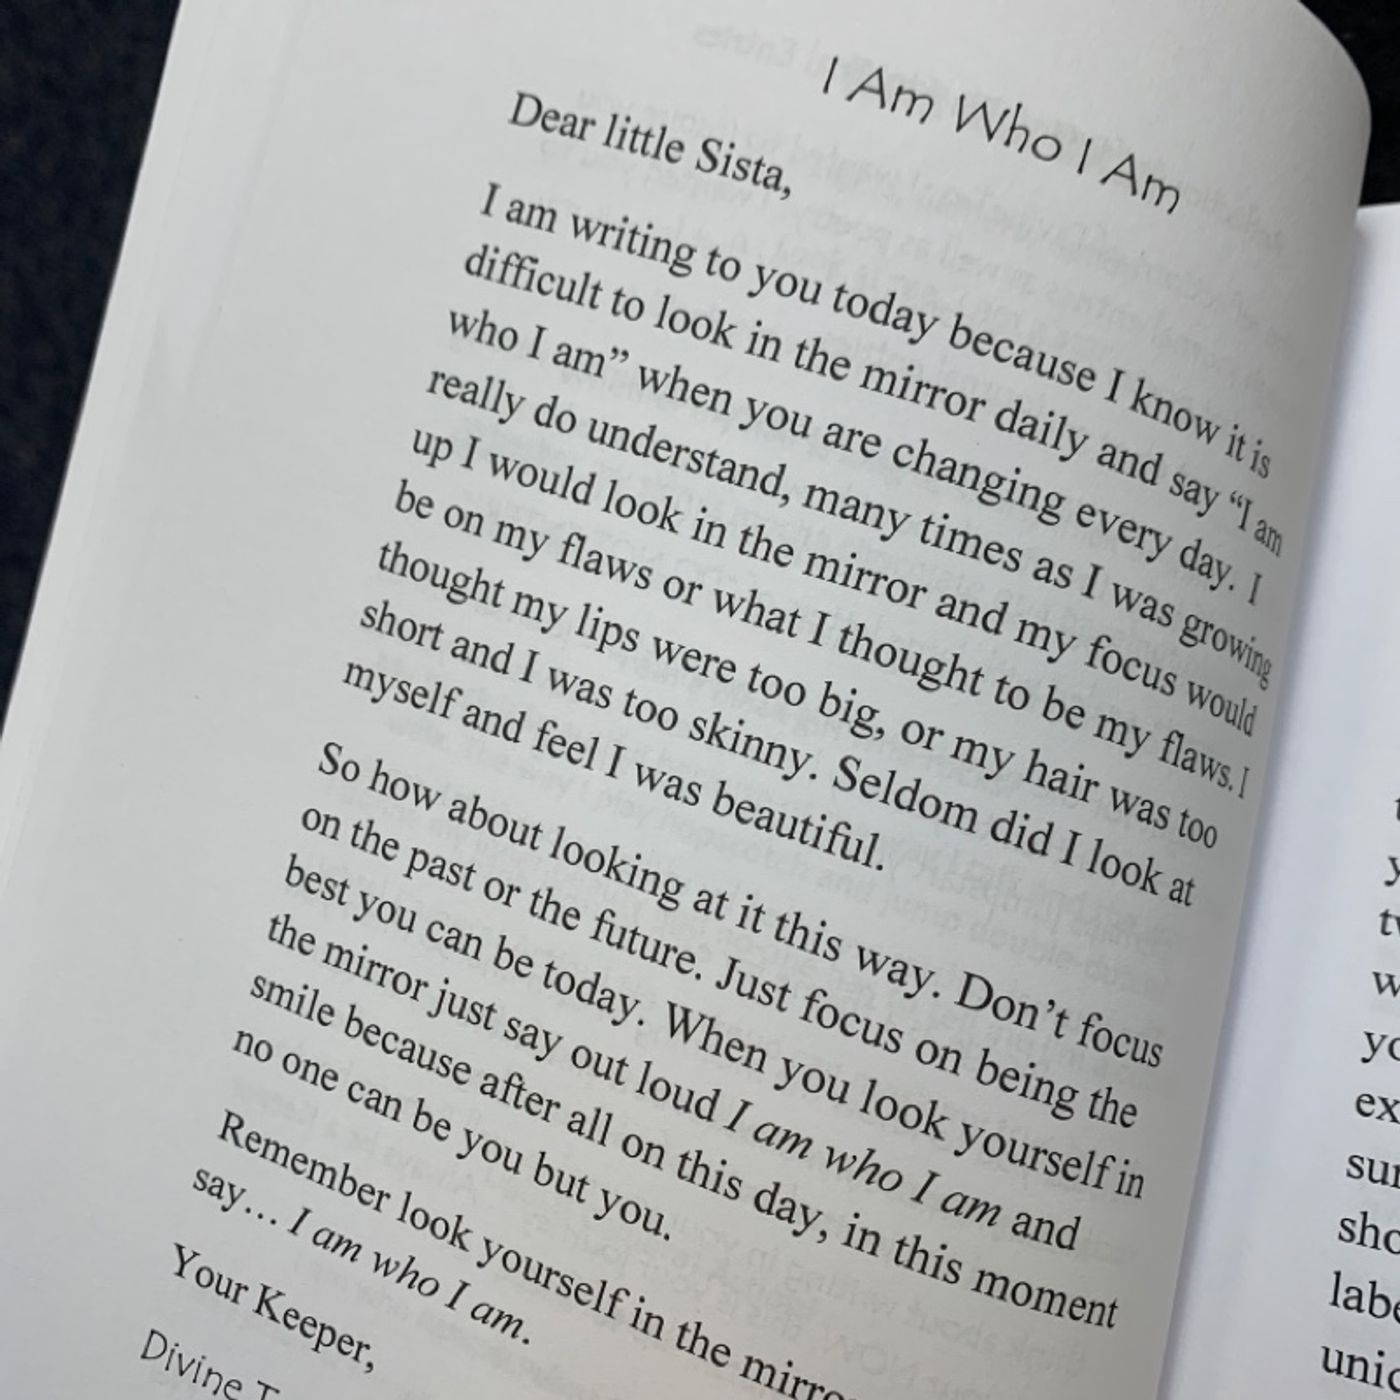 I Am Who I Am
Dear little Sista,
I am writing to you today because I know it is
difficult to look in the mirror daily and say “I am
who I am” when you are changing every day. I
really do understand, many times as I was growing
up I would look in the mirror and my focus would
be on my flaws or what I thought to be my flaws. I
thought my lips were too big, or my hair was too
short and I was too skinny. Seldom did I look at
myself and feel I was beautiful.
So how about looking at it this way. Don’t focus
on the past or the future. Just focus on being the
best you can be today. When you look yourself in
the mirror just say out loud I am who I am and
smile because after all on this day, in this moment
no one can be you but you.
Remember look yourself in the
say… I am who I am.
Your Keeper,
Divine